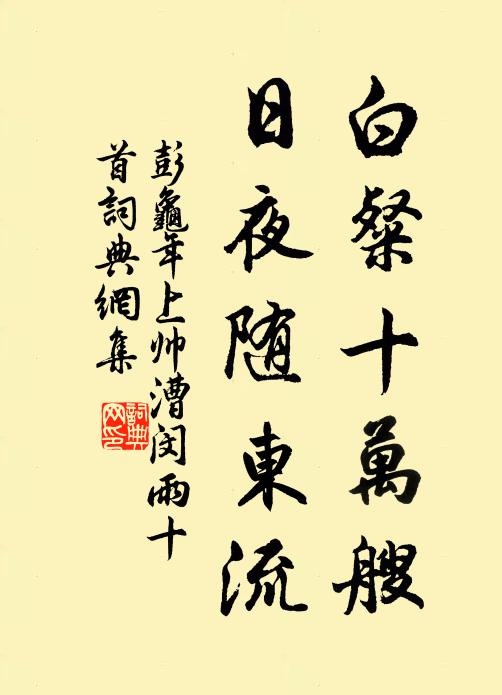 白粲十萬艘
日夜随東流
彭龜年上帅漕闵雨十
首詞典網集
詞典网印